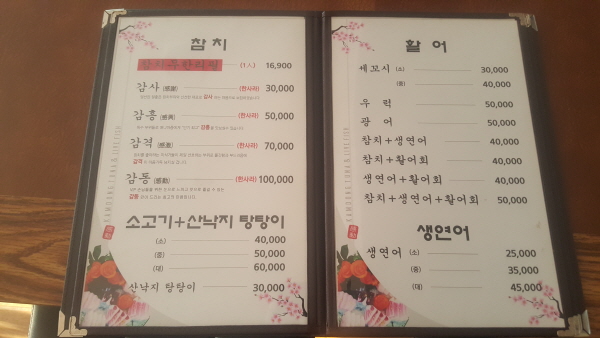 참치
참치무한리필 (1人) 16,900
감사 (感謝) (한사라) 30,000
감흥 (感興) (한사라) 50,000
감격 (感激) (한사라) 70,000
감동 (感動) (한사라) 100,000
소고기+산낙지 탕탕이
(소) 40,000
(중) 50,000
(대) 60,000
산낙지 탕탕이 30,000
활어
세꼬시 (소) 30,000
(중) 40,000
우럭 50,000
광어 50,000
참치+생연어 40,000
참치+활어회 40,000
생연어+활어회 40,000
참치+생연어+활어회 50,000
생연어
생연어 (소) 25,000
(중) 35,000
(대) 45,000